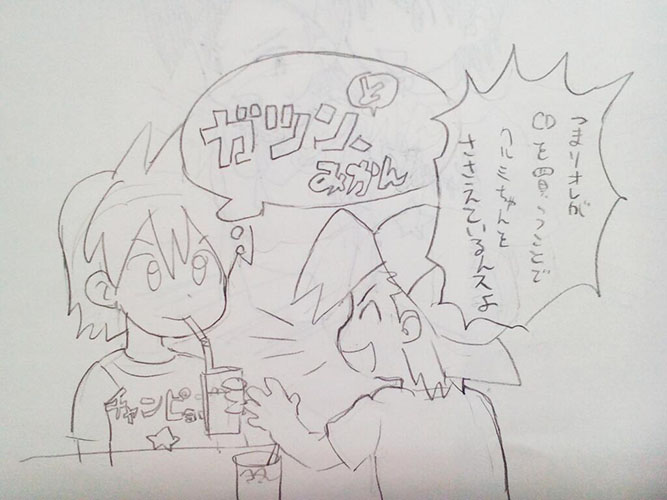 つまりオレが
CDを買うことで
クルミちゃんを
ささえているんスよ
と
ガツン、
みかん
チャンピオン